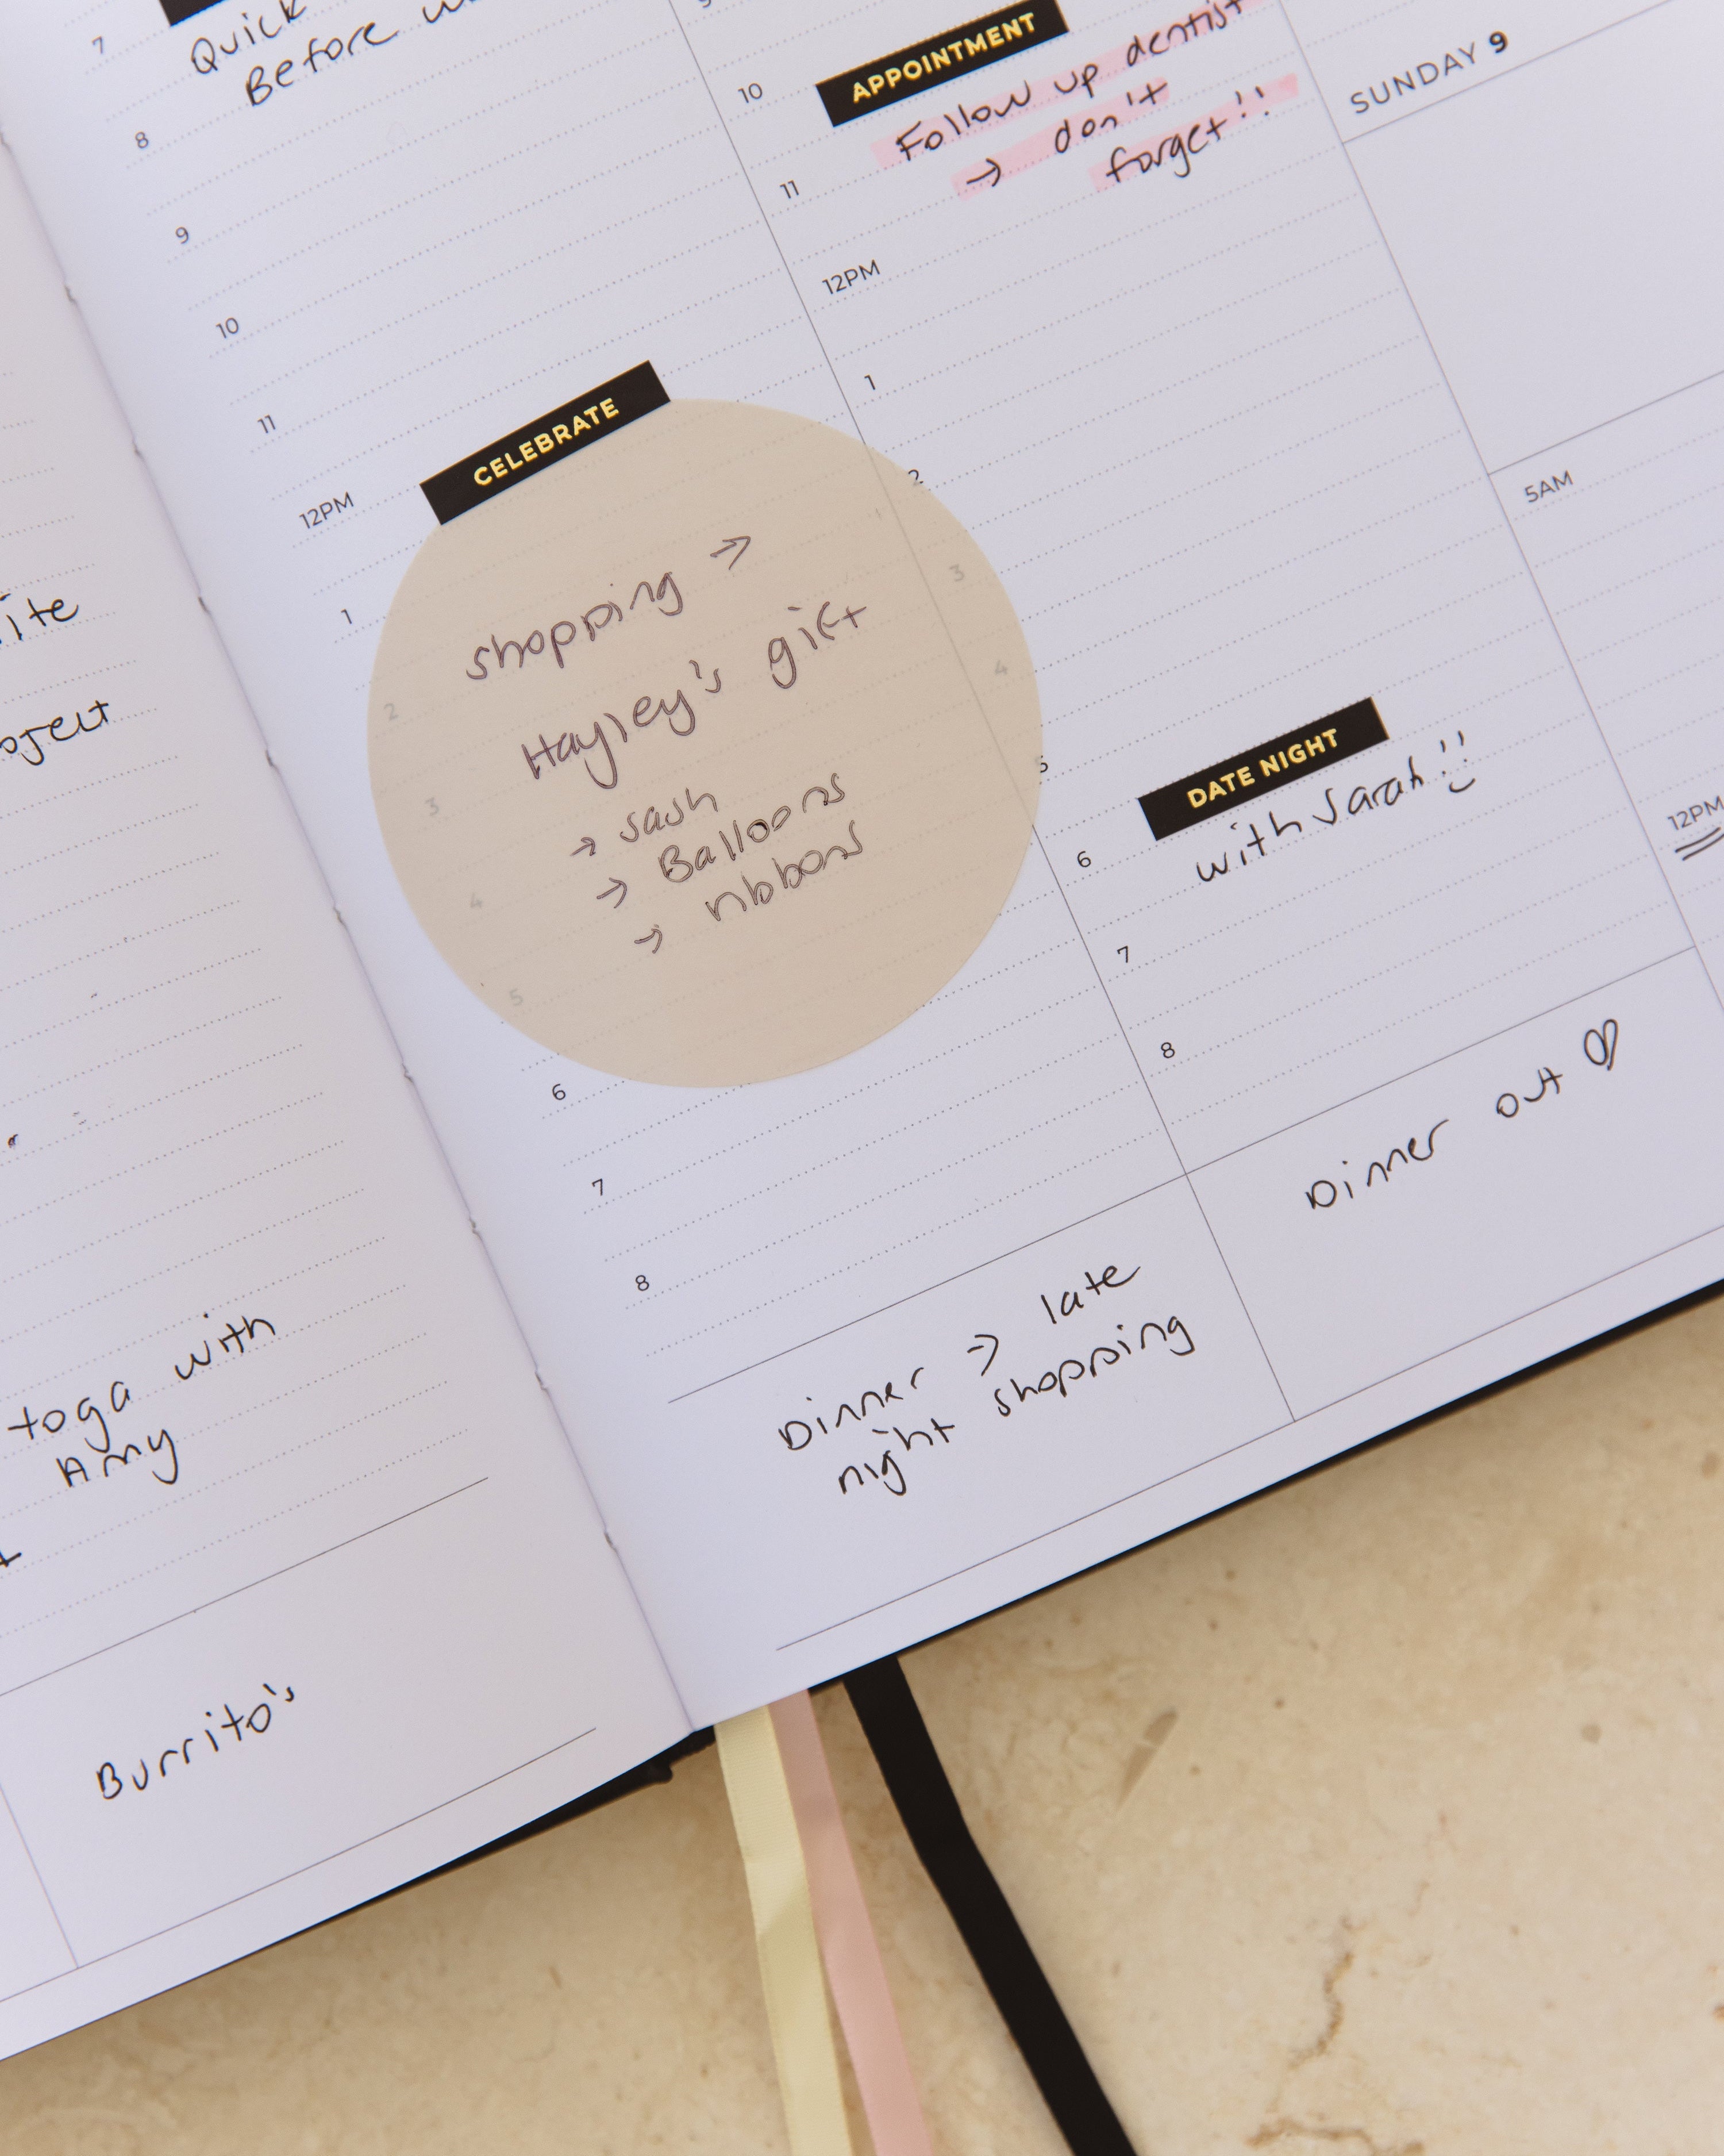 ite
oject
toga with
Amy
Burrito's
7
Quick
Before
8
9
10
11
12PM
1
2
3
4
5
6
7
8
CELEBRATE
shopping →
Hayley's gift
→ sash
→ Balloons
→ ribbons
Dinner → late
night shopping
10
APPOINTMENT
Follow up dentist
→ don't
forget!!
11
12PM
1
2
3
4
5
DATE NIGHT
with Sarah!!
6
7
8
Dinner out ♡
SUNDAY 9
5AM
12PM